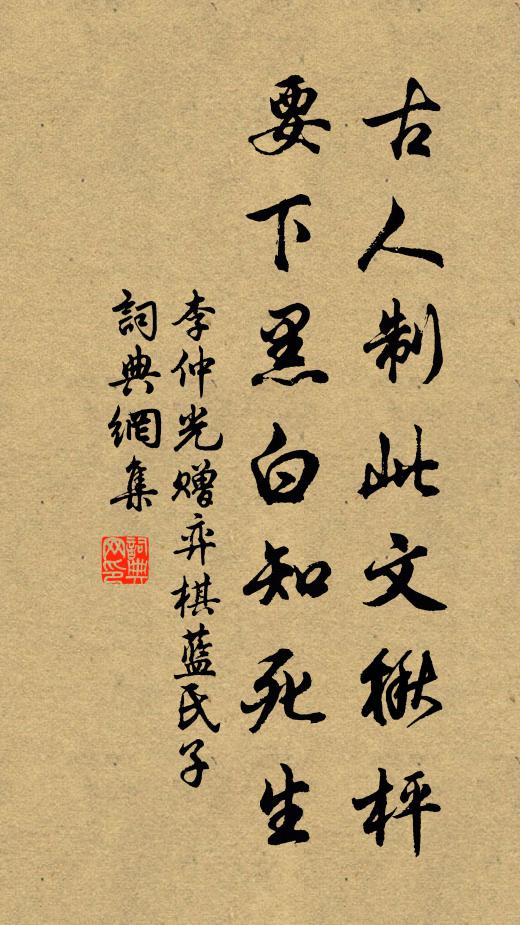 古人制此文楸枰
要下黑白知死生
李仲光赠弈棋蓝氏子
詞典網集
詞典
网印